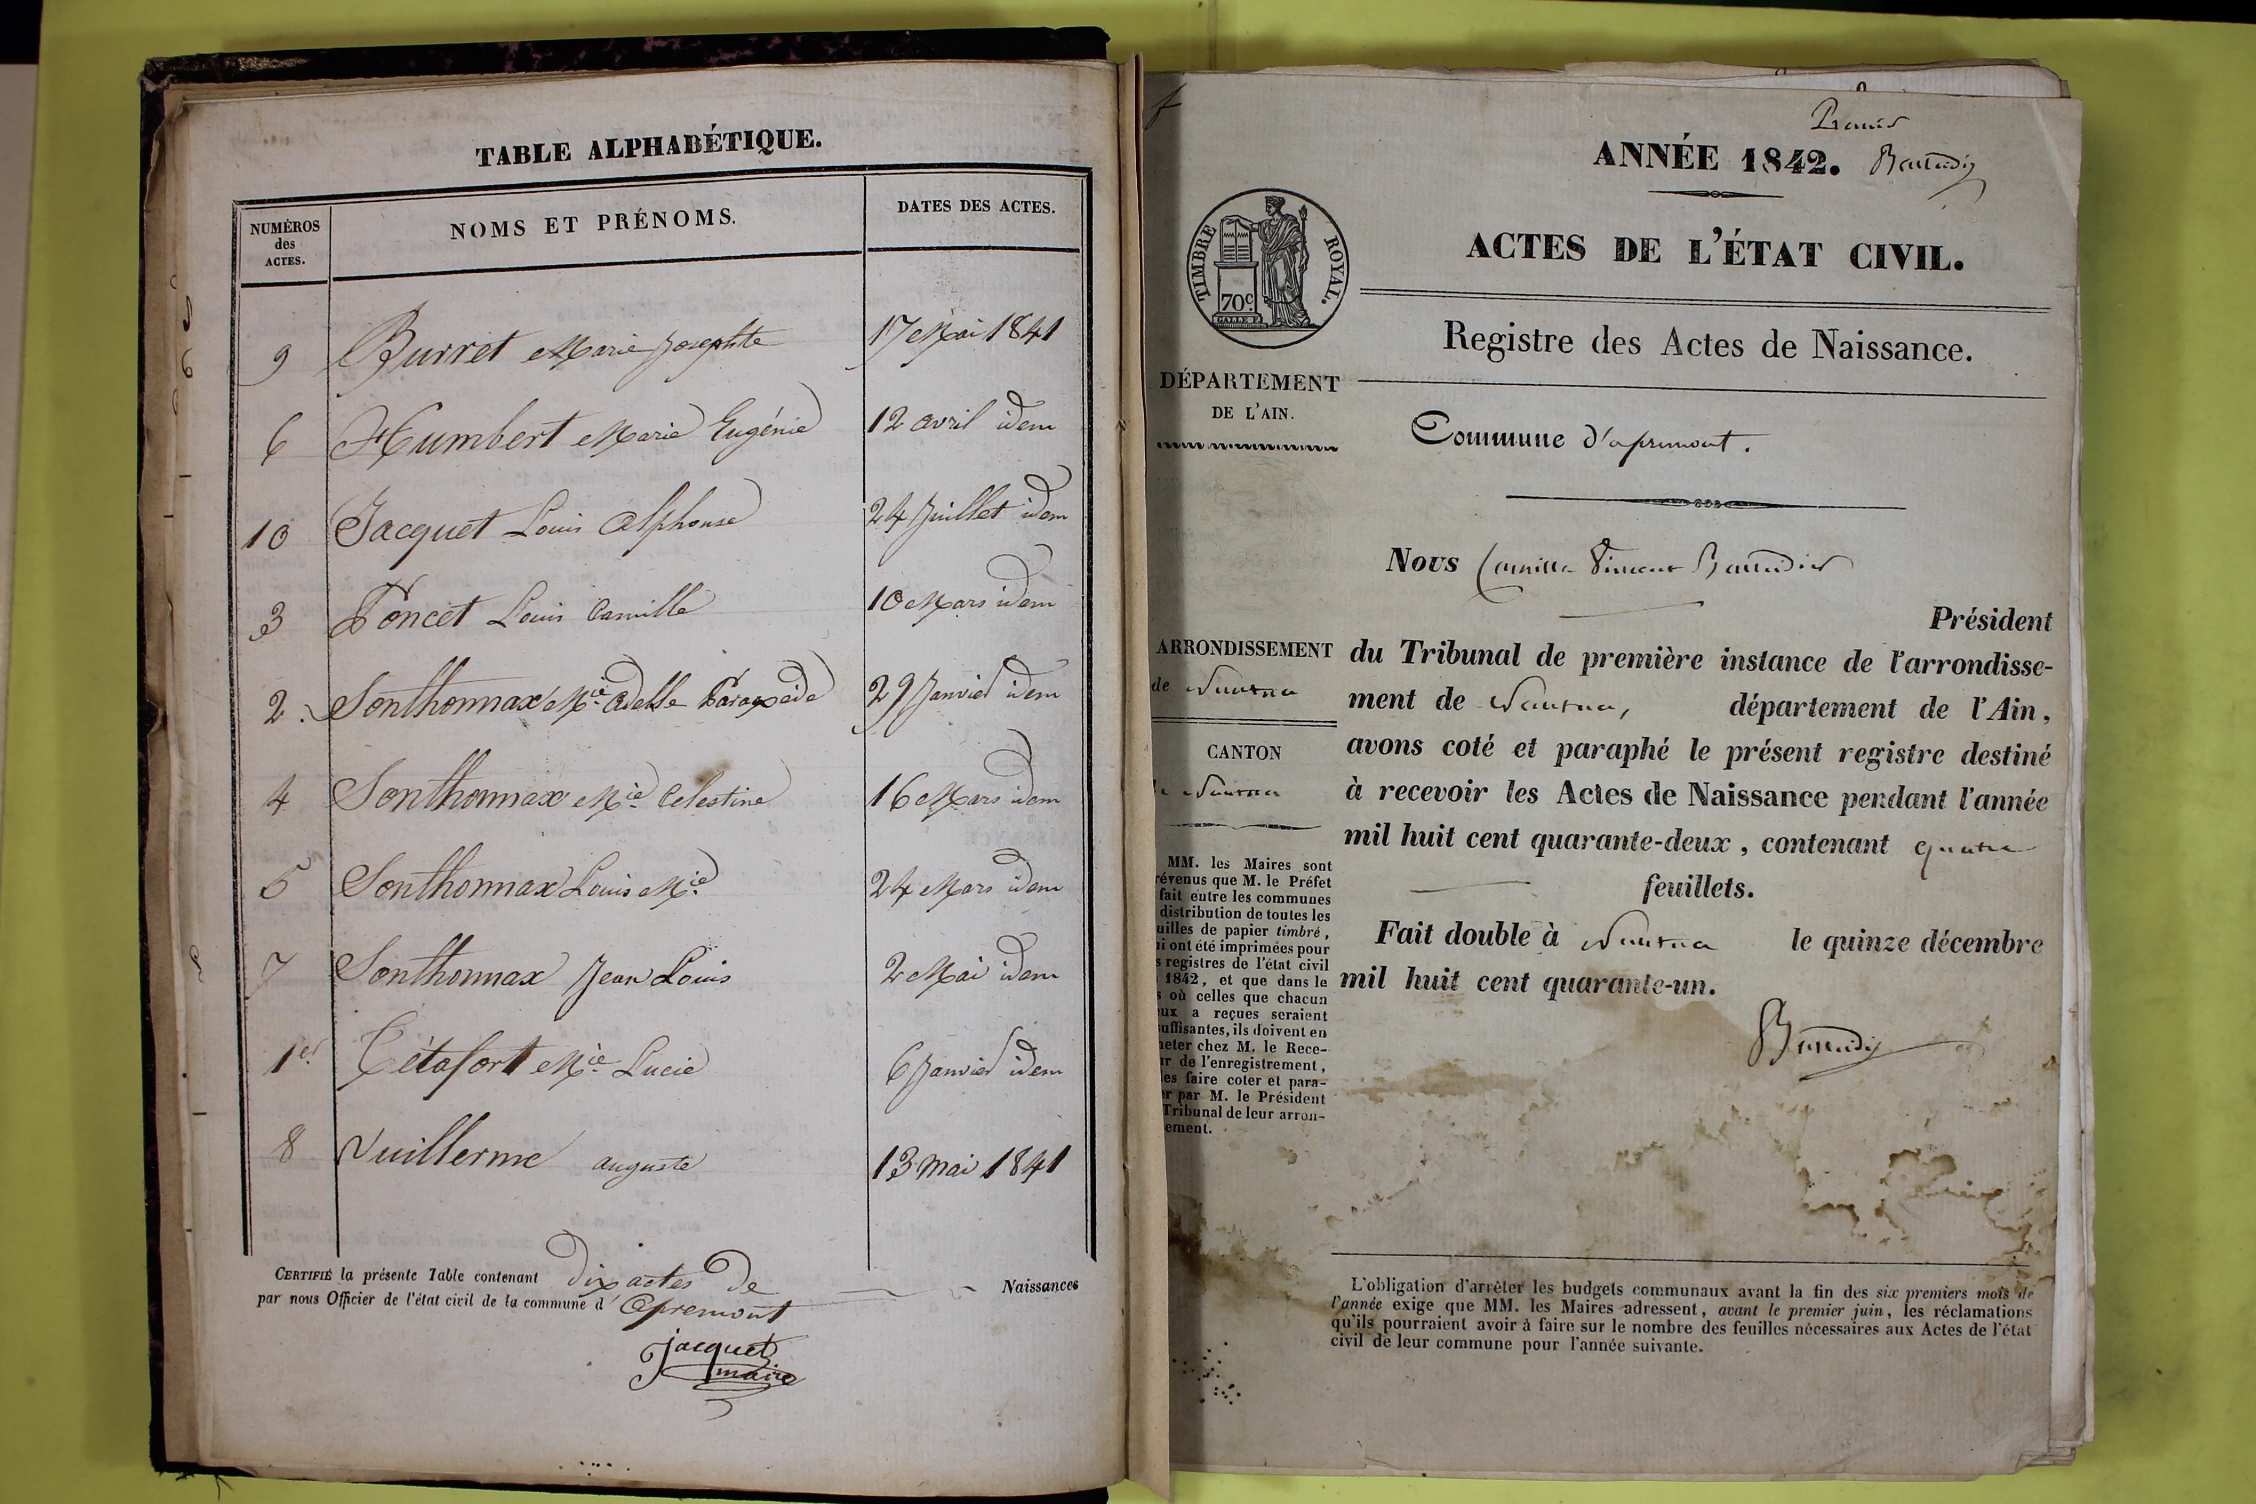 TABLE ALPHABÉTIQUE.
NUMÉROS des ACTES.
NOMS ET PRÉNOMS.
DATES DES ACTES.
9 Burret Marie Josephte 17 Mai 1841
6 Humbert Marie Eugénie 12 avril idem
10 Jacquet Louis Alphonse 24 Juillet idem
3 Poncet Louis Camille 10 Mars idem
2. Sonthonnax Mie Adelle 29 Janvier idem
4 Sonthonnax Mie Celestine 16 Mars idem
5 Sonthonnax Louis Mie 24 Mars idem
7 Sonthonnax Jean Louis 2 Mai idem
1er Tétafort Mie Lucie 6 Janvier idem
8 Vuillerme auguste 13 mai 1841
CERTIFIÉ la présente Table contenant dix actes de Naissances
par nous Officier de l'état civil de la commune d'Apremont
jacquet
maire
ANNÉE 1842.
ACTES DE L'ÉTAT CIVIL.
TIMBRE ROYAL.
70c
GALLE F.
Registre des Actes de Naissance.
DÉPARTEMENT
DE L'AIN.
Commune d'apremont.
Nous Camille Vincent
Président
ARRONDISSEMENT
de Nantua
CANTON
Nantua
du Tribunal de première instance de l'arrondisse-
ment de Nantua, département de l'Ain,
avons coté et paraphé le présent registre destiné
à recevoir les Actes de Naissance pendant l'année
mil huit cent quarante-deux, contenant quatre
feuillets.
Fait double à Nantua le quinze décembre
mil huit cent quarante-un.
MM. les Maires sont
révenus que M. le Préfet
fait entre les communes
distribution de toutes les
uilles de papier timbré,
ui ont été imprimées pour
s registres de l'état civil
1842, et que dans le
s où celles que chacun
eux a reçues seraient
suffisantes, ils doivent en
heter chez M. le Rece-
ur de l'enregistrement,
les faire coter et para-
er par M. le Président
Tribunal de leur arron-
sement.
L'obligation d'arrêter les budgets communaux avant la fin des six premiers mois de
l'année exige que MM. les Maires adressent, avant le premier juin, les réclamations
qu'ils pourraient avoir à faire sur le nombre des feuilles nécessaires aux Actes de l'état
civil de leur commune pour l'année suivante.